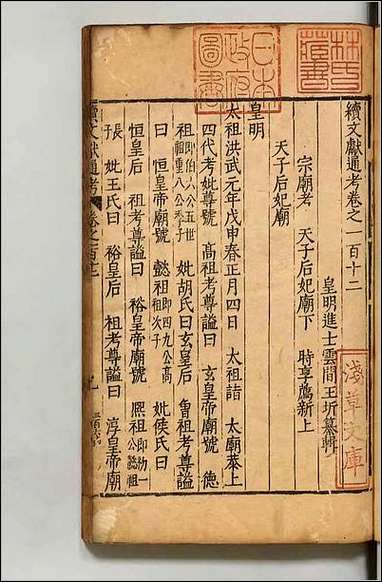 續文獻通考卷之一百十二
皇明進士雲間王圻纂輯
宗廟考 天子后妃廟下 時享薦新上
天子后妃廟
皇明
太祖洪武元年戊申春正月四日 太祖詣 太廟恭上
四代考妣尊號 髙祖考尊謚曰 玄皇帝廟號 德
祖
妣胡氏曰玄皇后 曾祖考尊謚
曰 恒皇帝廟號 懿祖
妣侯氏曰
恒皇后 祖考尊謚曰 裕皇帝廟號 熈祖
妣王氏曰 裕皇后 祖考尊謚曰 淳皇帝廟
續文獻通考
日本政府圖書
林氏藏書
淺草文庫